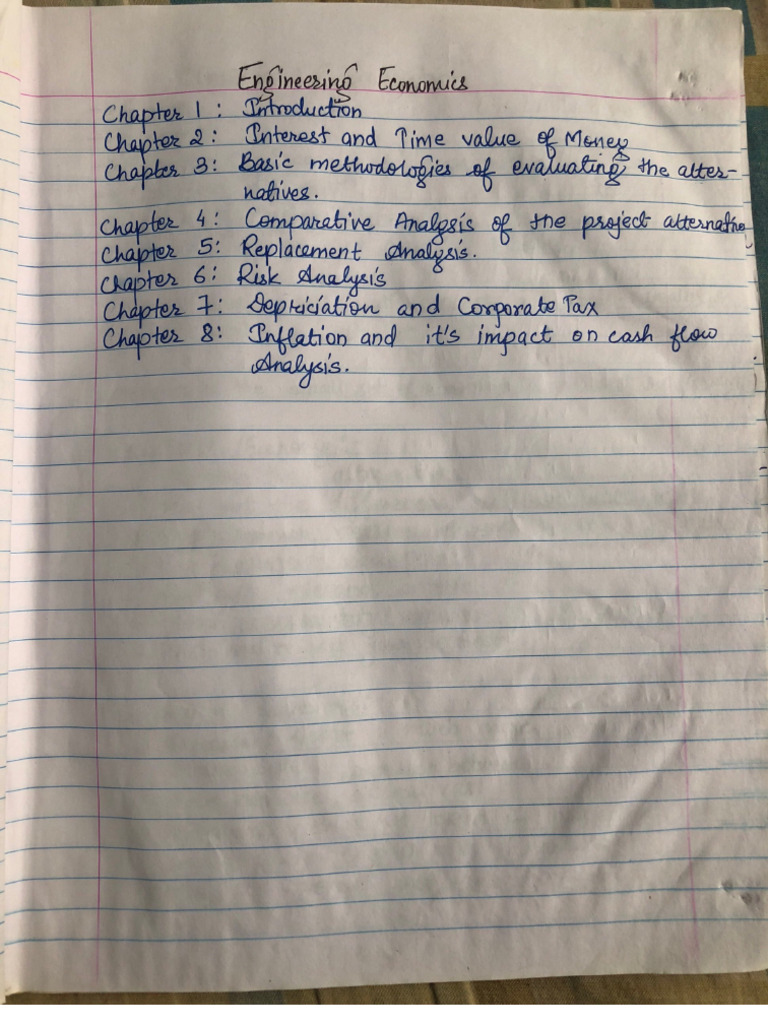 Engineering Economics
Chapter 1 : Introduction
Chapter 2 : Interest and Time value of Money
Chapter 3 : Basic methodologies of evaluating the alter-
natives.
Chapter 4 : Comparative Analysis of the project alternative
Chapter 5 : Replacement Analysis.
Chapter 6 : Risk Analysis
Chapter 7 : Depriciation and Corporate Tax
Chapter 8 : Inflation and it's impact on cash flow
Analysis.